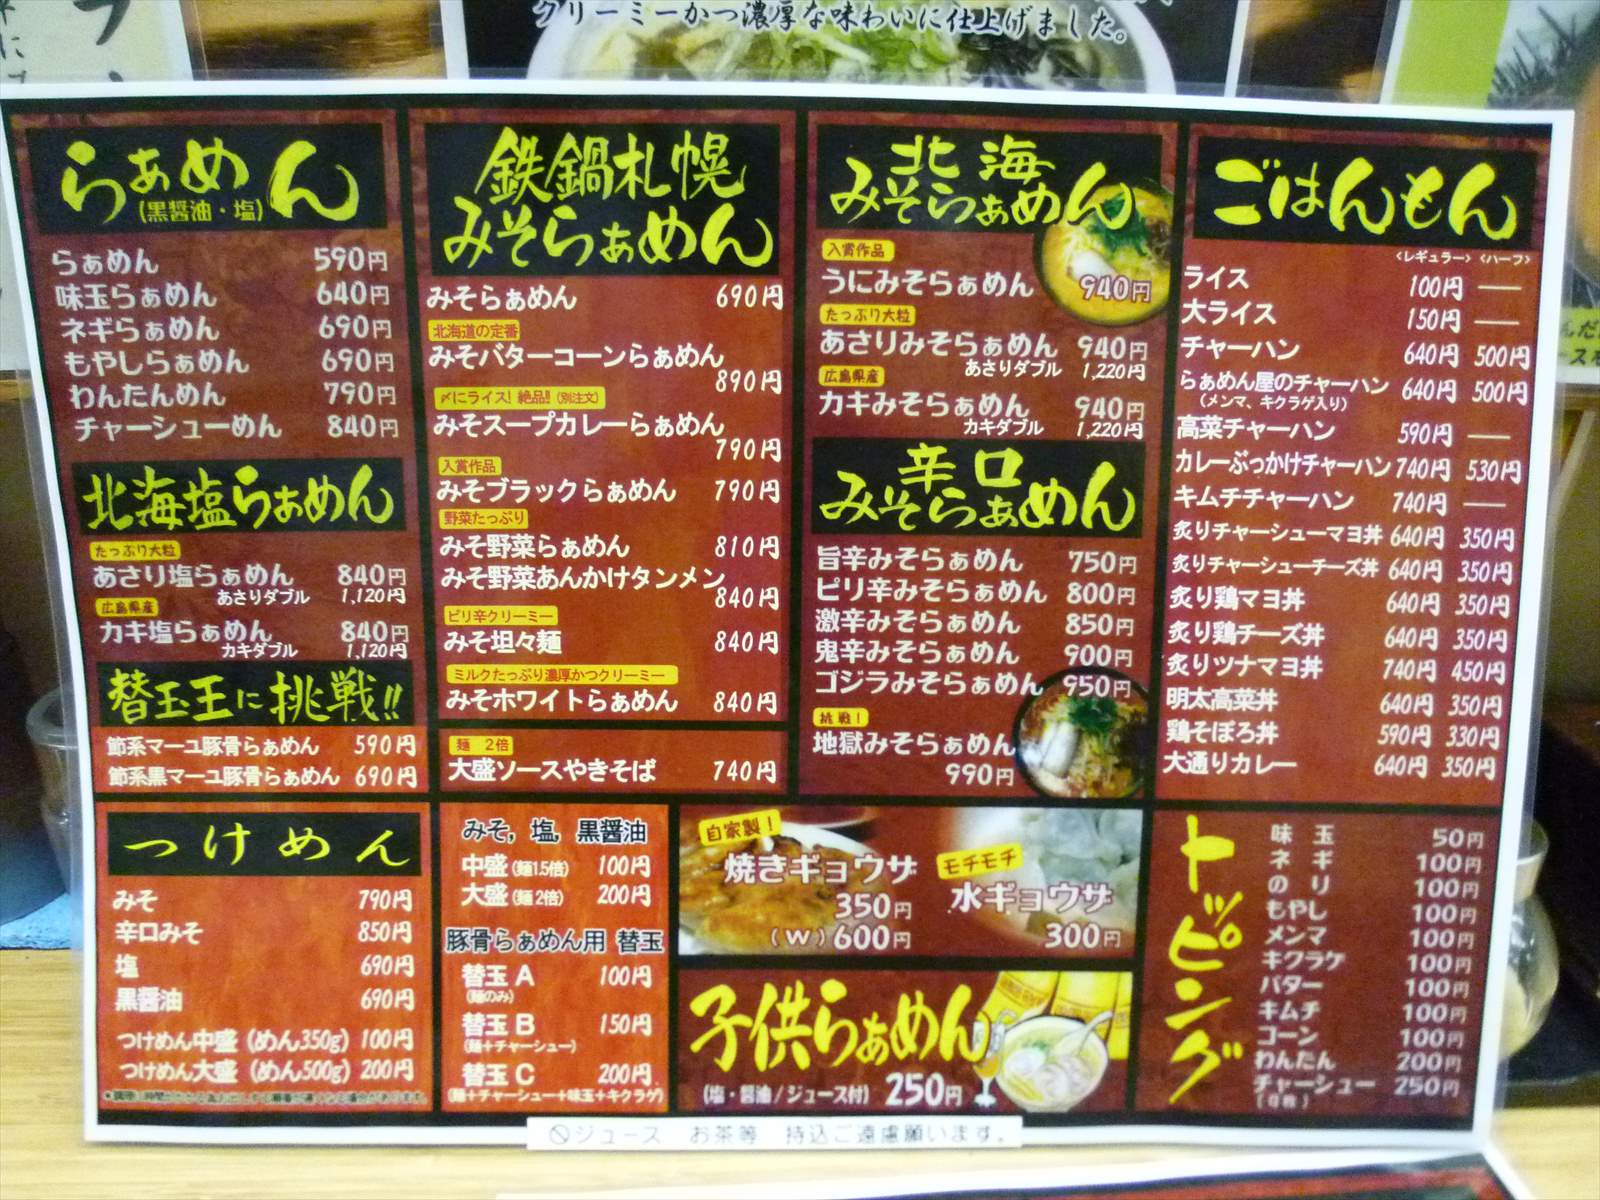 クリーミーかつ濃厚な味わいに仕上げました。
らぁめん
(黒醤油・塩)
らぁめん 590円
味玉らぁめん 640円
ネギらぁめん 690円
もやしらぁめん 690円
わんたんめん 790円
チャーシューめん 840円
北海塩らぁめん
たっぷり大粒
あさり塩らぁめん 840円
あさりダブル 1,120円
広島県産
カキ塩らぁめん 840円
カキダブル 1,120円
替玉王に挑戦!!
節系マーユ豚骨らぁめん 590円
節系黒マーユ豚骨らぁめん 690円
つけめん
みそ 790円
辛口みそ 850円
塩 690円
黒醤油 690円
つけめん中盛(めん350g) 100円
つけめん大盛(めん500g) 200円
鉄鍋札幌
みそらぁめん
みそらぁめん 690円
北海道の定番
みそバターコーンらぁめん
890円
〆にライス!絶品!!(別注文)
みそスープカレーらぁめん
790円
入賞作品
みそブラックらぁめん 790円
野菜たっぷり
みそ野菜らぁめん 810円
みそ野菜あんかけタンメン
840円
ピリ辛クリーミー
みそ坦々麺 840円
ミルクたっぷり濃厚かつクリーミー
みそホワイトらぁめん 840円
麺 2倍
大盛ソースやきそば 740円
みそ,塩,黒醤油
中盛(麺1.5倍) 100円
大盛(麺2倍) 200円
豚骨らぁめん用 替玉
替玉A 100円
(麺のみ)
替玉B 150円
(麺+チャーシュー)
替玉C 200円
(麺+チャーシュー+味玉+キクラゲ)
北海
みそらぁめん
入賞作品
うにみそらぁめん 940円
たっぷり大粒
あさりみそらぁめん 940円
あさりダブル 1,220円
広島県産
カキみそらぁめん 940円
カキダブル 1,220円
辛口
みそらぁめん
旨辛みそらぁめん 750円
ピリ辛みそらぁめん 800円
激辛みそらぁめん 850円
鬼辛みそらぁめん 900円
ゴジラみそらぁめん 950円
挑戦!
地獄みそらぁめん
990円
自家製!
焼きギョウザ
350円
(W)600円
モチモチ
水ギョウザ
300円
子供らぁめん
(塩・醤油/ジュース付) 250円
ごはんもん
<レギュラー> <ハーフ>
ライス 100円 ――
大ライス 150円 ――
チャーハン 640円 500円
らぁめん屋のチャーハン 640円 500円
(メンマ、キクラゲ入り)
高菜チャーハン 590円 ――
カレーぶっかけチャーハン 740円 530円
キムチチャーハン 740円 ――
炙りチャーシューマヨ丼 640円 350円
炙りチャーシューチーズ丼 640円 350円
炙り鶏マヨ丼 640円 350円
炙り鶏チーズ丼 640円 350円
炙りツナマヨ丼 740円 450円
明太高菜丼 640円 350円
鶏そぼろ丼 590円 330円
大通りカレー 640円 350円
トッピング
味玉 50円
ネギ 100円
のり 100円
もやし 100円
メンマ 100円
キクラゲ 100円
バター 100円
キムチ 100円
コーン 100円
わんたん 200円
チャーシュー 250円
ジュース お茶等 持込ご遠慮願います。